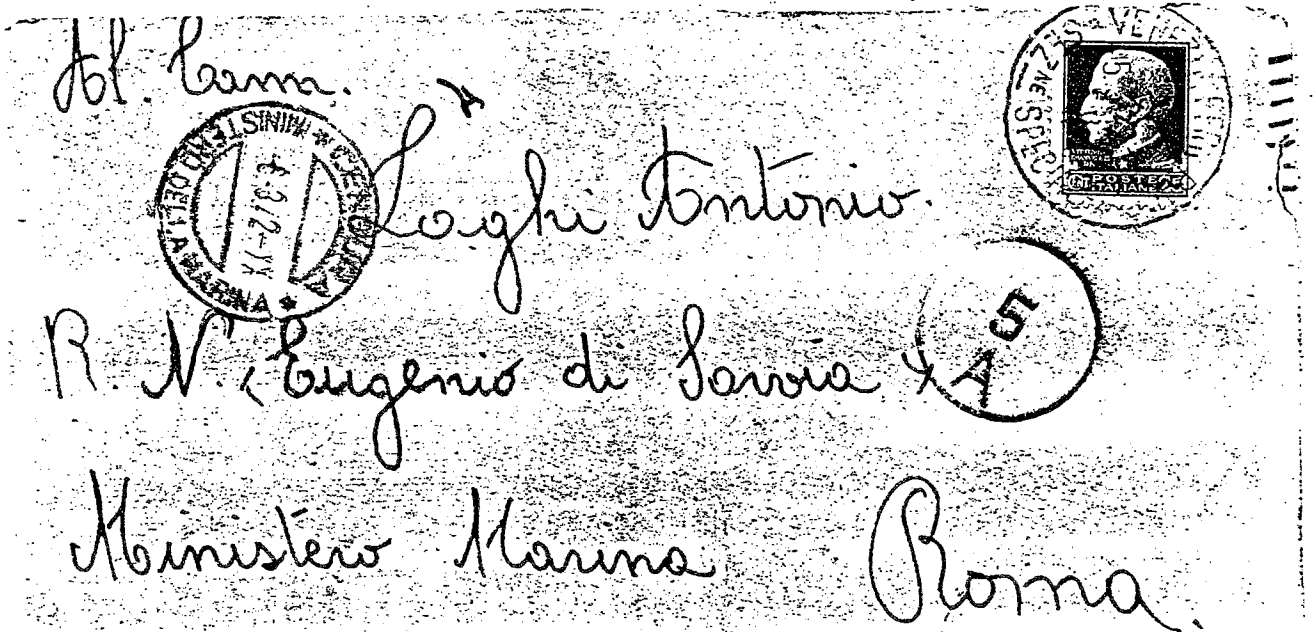 Al. Cann.
Loghi Antonio.
R. N. "Eugenio di Savoia"
Ministero Marina
Roma
MINISTERO DELLA MARINA
POSTE
ITALIANE
A 5